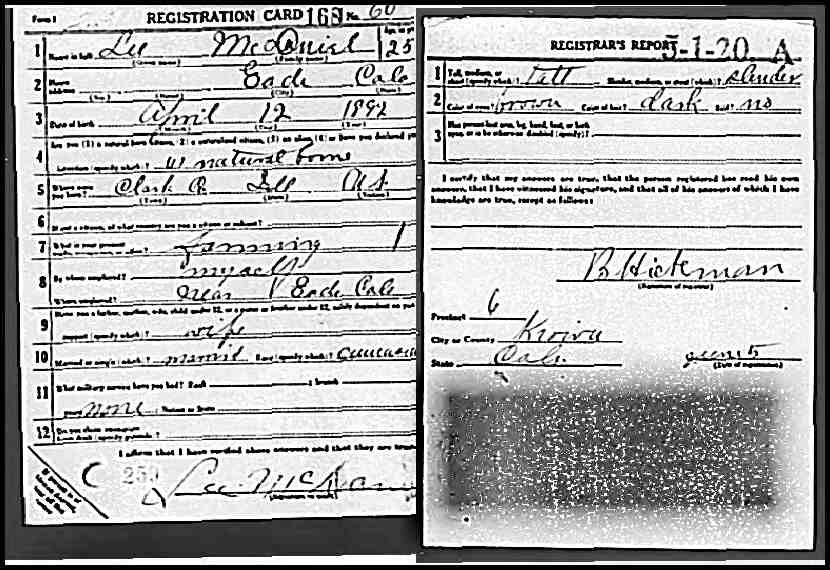 Form 1 REGISTRATION CARD 168 No. 60
1 Name in full Lee McDaniel Age, in yrs 25
(Given name) (Family name)
2 Home address Eads Colo
(No.) (Street) (City) (State)
3 Date of birth April 12 1892
(Month) (Day) (Year)
Are you (1) a natural born citizen, (2) a naturalized citizen, (3) an alien, (4) or have you declared your
4 intention (specify which)? natural born
5 Where were you born? Ill US
(Town) (State) (Nation)
6 If not a citizen, of what country are you a citizen or subject?
7 What is your present trade, occupation, or office? Farming
8 By whom employed? myself
Where employed? near Eads Colo
9 Have you a father, mother, wife, child under 12, or a sister or brother under 12, solely dependent on you
support (specify which)? wife
10 Married or single (which)? Race (specify which)?
11 What military service have you had? Rank ; branch
years none ; Nation or State
12 Do you claim exemption from draft (specify grounds)?
I affirm that I have verified above answers and that they are true
C 259 Lee McDaniel
(Signature or mark)
REGISTRAR'S REPORT 5-1-20 A
1 Tall, medium, or short (specify which)? tall Slender, medium, or stout (which)? slender
2 Color of eyes? brown Color of hair? dark Bald? no
3 Has person lost arm, leg, hand, foot, or both eyes, or is he otherwise disabled (specify)?
I certify that my answers are true, that the person registered has read his own
answers, that I have witnessed his signature, and that all of his answers of which I have
knowledge are true, except as follows:
B Hickman
(Signature of registrar)
Precinct 6
City or County Kiowa
State Colo. June 5
(Date of registration)